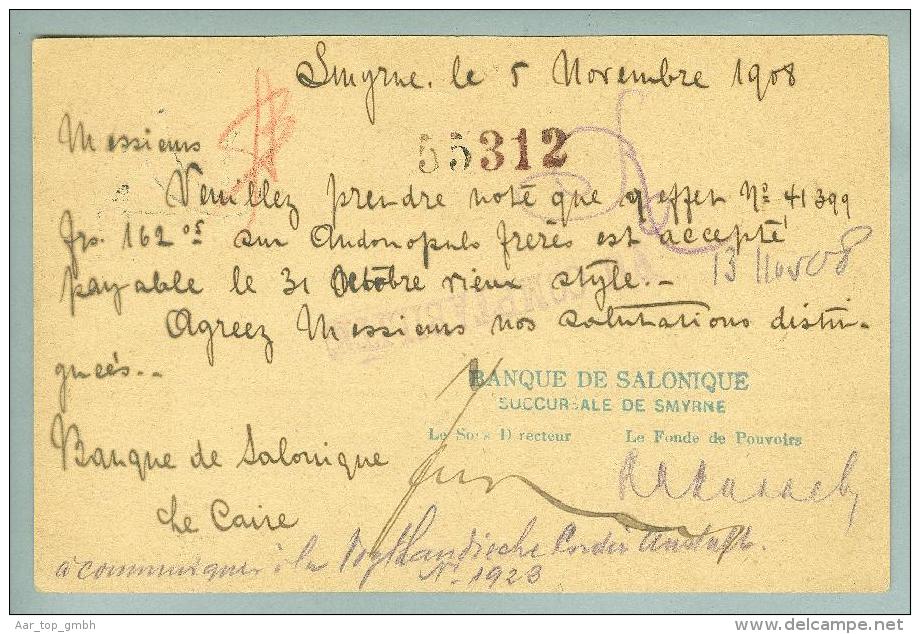 Smyrne, le 5 Novembre 1908
Messieurs
55312
Veuillez prendre note que l'effet No 41399
frs. 162.05 sur Andonopulo frères est accepté
payable le 31 Octobre vieux style.-
13 Nov 08
Agreez Messieurs nos salutations distin-
gueés..
BANQUE DE SALONIQUE
SUCCURSALE DE SMYRNE
Le Sous Directeur Le Fondé de Pouvoirs
Banque de Salonique
Le Caire
à communiquer à la
No 1923
Aar_top_gmbh
www.delcampe.net